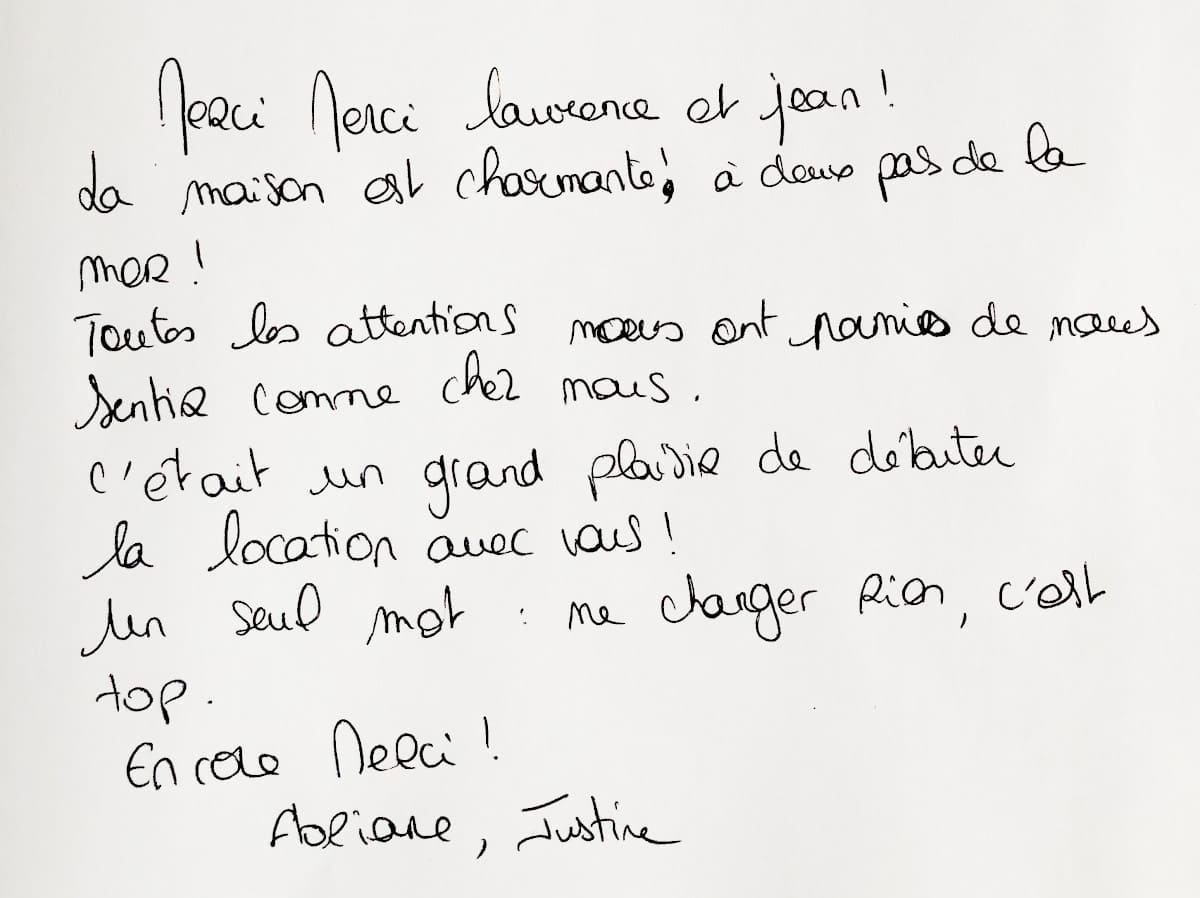 Merci Merci laurence et jean !
La maison est charmante! à deux pas de la
mer !
Toutes les attentions nous ont permis de nous
sentir comme chez nous.
c'était un grand plaisir de débuter
la location avec vous !
Un seul mot : ne changer rien, c'est
top.
Encore Merci !
Justine